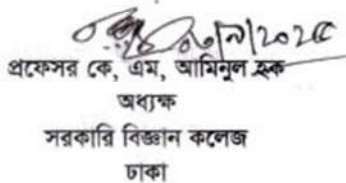 প্রফেসর কে, এম, আমিনুল হক
অধ্যক্ষ
সরকারি বিজ্ঞান কলেজ
ঢাকা